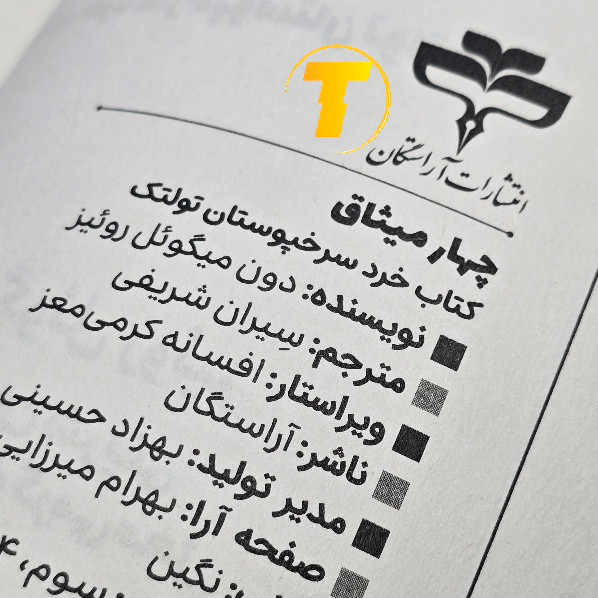 T
انتشارات آراستگان
چهار میثاق
کتاب خرد سرخپوستان تولتک
نویسنده: دون میگوئل روئیز
مترجم: سِیران شریفی
ویراستار: افسانه کرمی‌معز
ناشر: آراستگان
مدیر تولید: بهزاد حسینی
صفحه آرا: بهرام میرزایی
نگین
سوم، ۴